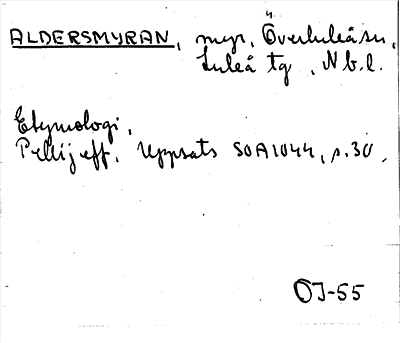 ALDERSMYRAN, myr, Överluleå sn,
Luleå tg, Nb.l.
Etymologi,
Pellijeff, Uppsats SOA1044, s.30,
OJ-55